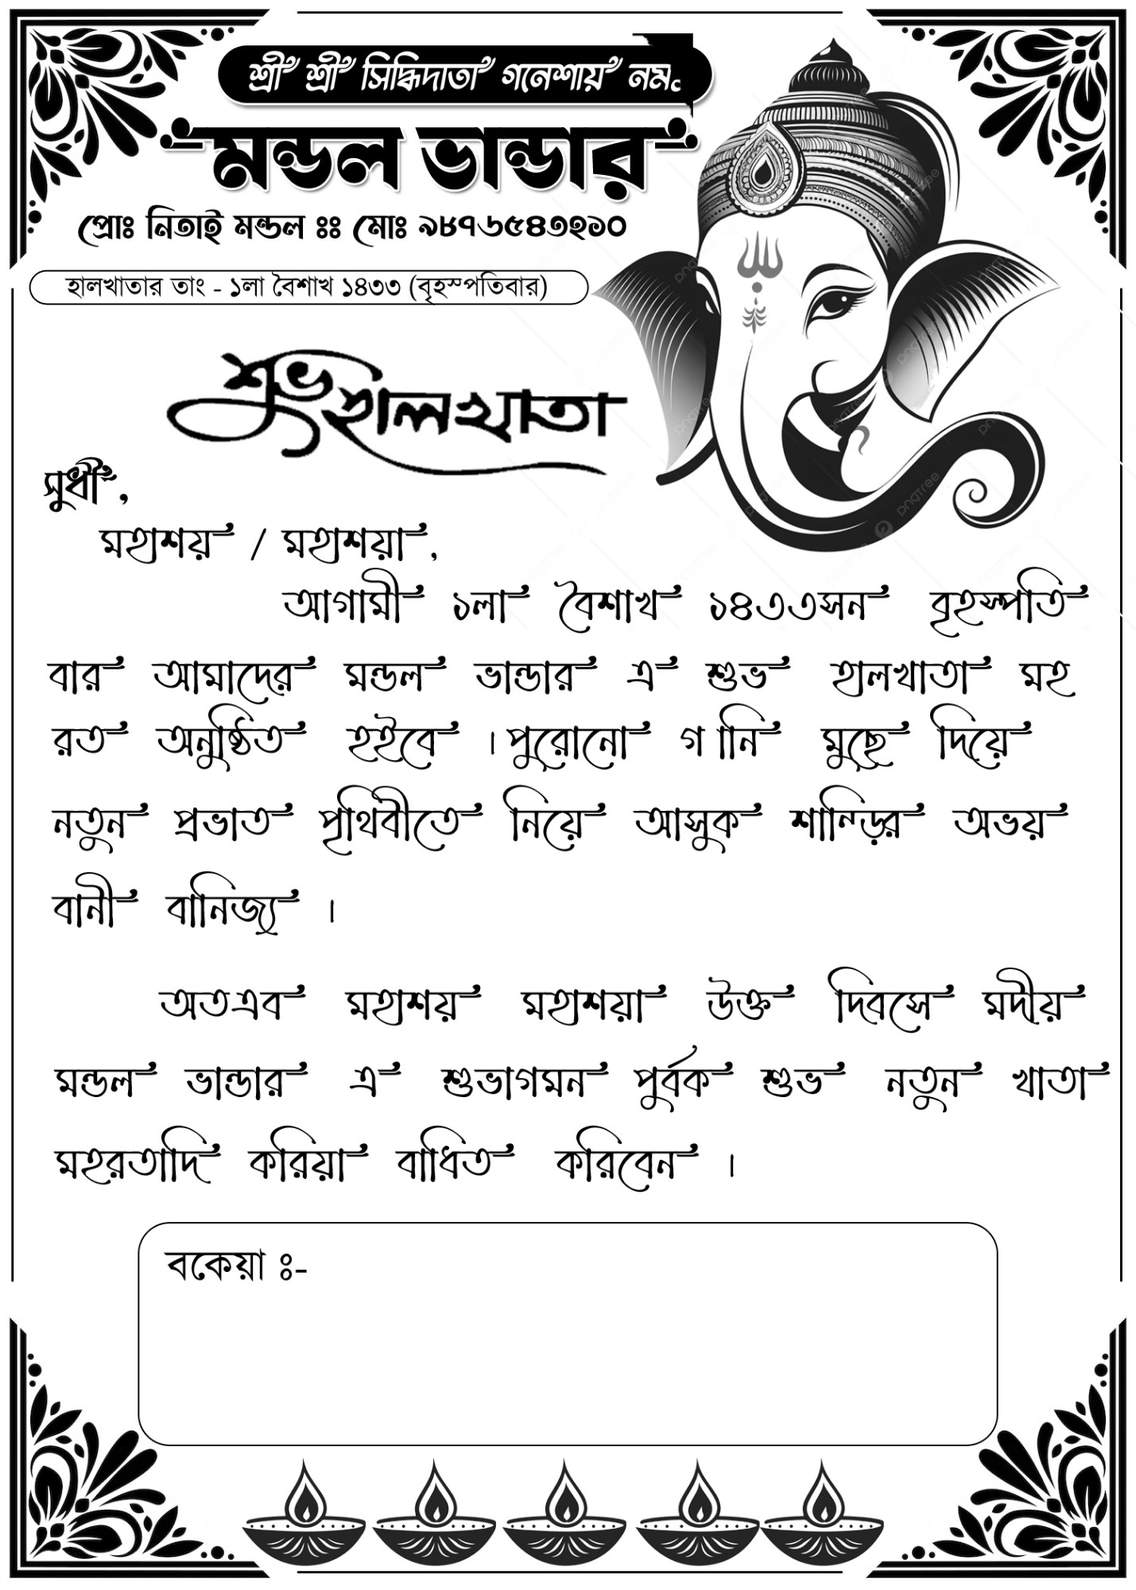 শ্রী শ্রী সিদ্ধিদাতা গনেশায় নমঃ
মন্ডল ভান্ডার
প্রোঃ নিতাই মন্ডল ঃঃ মোঃ ৯৮৭৬৫৪৩২১০
হালখাতার তাং - ১লা বৈশাখ ১৪৩৩ (বৃহস্পতিবার)
শুভ হালখাতা
সুধী,
মহাশয় / মহাশয়া,
আগামী ১লা বৈশাখ ১৪৩৩সন বৃহস্পতি
বার আমাদের মন্ডল ভান্ডার এ শুভ হালখাতা মহ
রত অনুষ্ঠিত হইবে । পুরোনো গ ানি মুছে দিয়ে
নতুন প্রভাত পৃথিবীতে নিয়ে আসুক শান্ড়ির অভয়
বানী বানিজ্য ।
অতএব মহাশয় মহাশয়া উক্ত দিবসে মদীয়
মন্ডল ভান্ডার এ শুভাগমন পুর্বক শুভ নতুন খাতা
মহরতাদি করিয়া বাধিত করিবেন ।
বকেয়া ঃ-
pngtree